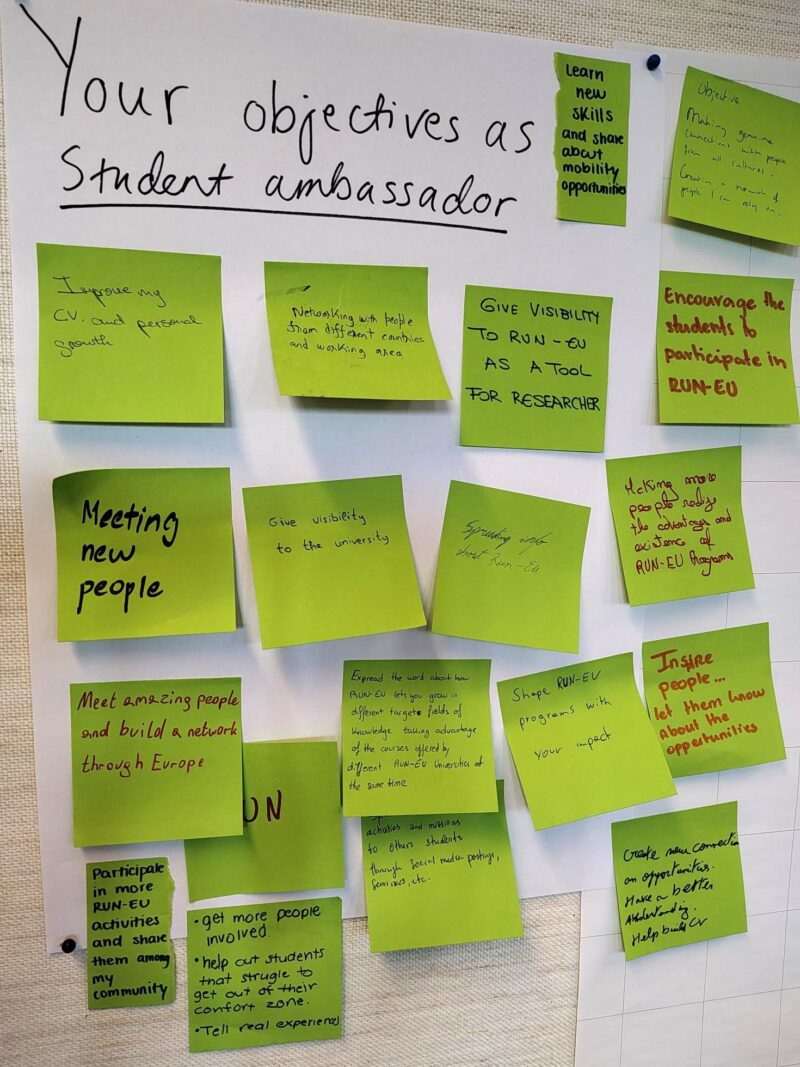 Your objectives as
Student ambassador
Learn
new
skills
and share
about
mobility
opportunities
Objective
Making genuine
connections with people
from all cultures.
Creating a network of
people I can rely on.
Improve my
CV. and personal
growth
Networking with people
from different countries
and working area
GIVE VISIBILITY
TO RUN-EU
AS A TOOL
FOR RESEARCHER
Encourage the
students to
participate in
RUN-EU
Meeting
new
people
Give visibility
to the university
Spreading info
about Run-EU
Making more
people realize
the advantages and
existence of
RUN-EU Programs
Meet amazing people
and build a network
through Europe
UN
Expread the word about how
RUN-EU lets you grow in
different targets fields of
knowledge taking advantage
of the courses offered by
different RUN-EU Universities at
the same time
activities and missions
to others students
through social media postings,
seminars, etc.
Shape RUN-EU
programs with
your impact
Inspire
people...
let them know
about the
oppertunities
Participate
in more
RUN-EU
activities
and share
them among
my
community
• get more people
involved
• help out students
that strugle to
get out of their
comfort zone.
• Tell real experiences
Create new connection
an opportunities.
Have a better
Help build CV